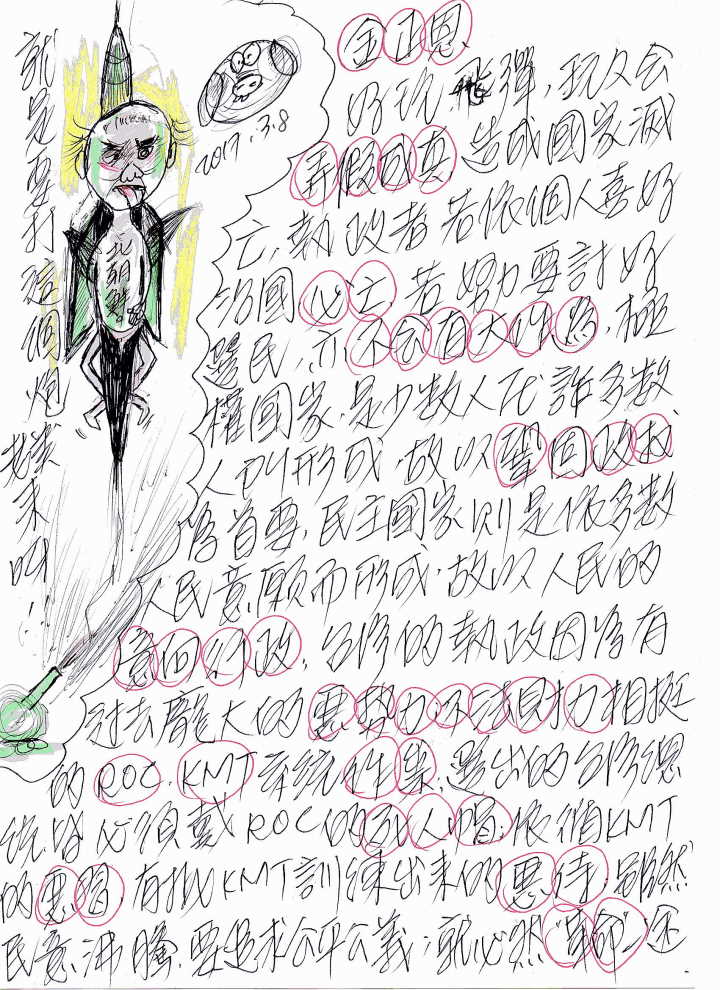 金正恩
好玩飛彈,玩久会
弄假成真,造成國家滅
亡,執政者若依個人喜好
治國必亡,若努力要討好
選民,亦不会有大作為,極
權國家,是少數人在許多數
人叫形成,故以鞏固政权
為首要,民主國家則是依多數
人民意願而形成,故以人民的
意向行政,台灣的執政因為有
过去龐大的惡勢力不法暴力相挺
的ROC KMT系統作祟,選出的台灣總
統皆必須戴ROC的死人帽,依循KMT
的惡習,有批KMT訓練出来的惡待,雖然
民意沸騰,要追求公平公義,就必然
就是要打這個炮
來叫!
2017.3.8
北朝鮮